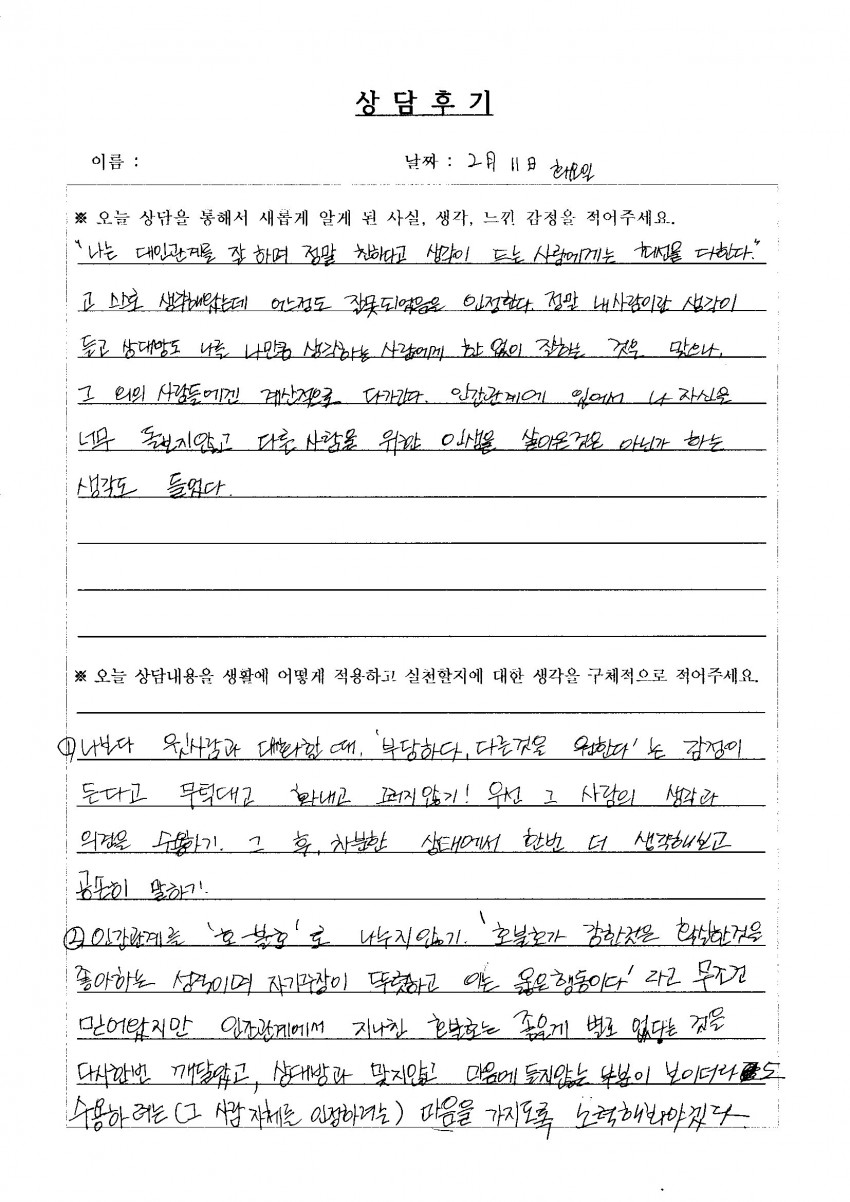 상담후기
이름 :
날짜 : 2月 11日 화요일
※ 오늘 상담을 통해서 새롭게 알게 된 사실, 생각, 느낀 감정을 적어주세요.
"나는 대인관계를 잘 하며 정말 친하다고 생각이 드는 사람에게는 최선을 다한다."
고 스스로 생각해왔는데 어느정도 잘못되었음은 인정한다. 정말 내사람이란 생각이
들고 상대방도 나를 나만큼 생각하는 사람에게 한 없이 잘하는 것은 맞으나,
그 외의 사람들에겐 계산적으로 다가간다. 인간관계에 있어서 나 자신은
너무 돌보지않고 다른 사람을 위한 인생을 살아온것은 아닌가 하는
생각도 들었다.
※ 오늘 상담내용을 생활에 어떻게 적용하고 실천할지에 대한 생각을 구체적으로 적어주세요.
① 나보다 윗사람과 대화할 때, '부당하다, 다른것을 원한다' 는 감정이
든다고 무턱대고 화내고 그러지않기! 우선 그 사람의 생각과
의견을 수용하기. 그 후, 차분한 상태에서 한번 더 생각해보고
공손히 말하기.
② 인간관계를 '호·불호'로 나누지않기. '호불호가 강한것은 확실한것을
좋아하는 성격이며 자기주장이 뚜렷하고 이는 옳은행동이다' 라고 무조건
믿어왔지만 인간관계에서 지나친 호불호는 좋을게 별로 없다는 것을
다시한번 깨달았고, 상대방과 맞지않고 마음에 들지않는 부분이 보이더라도
수용하려는 (그 사람 자체를 인정하려는) 마음을 가지도록 노력해봐야겠다.